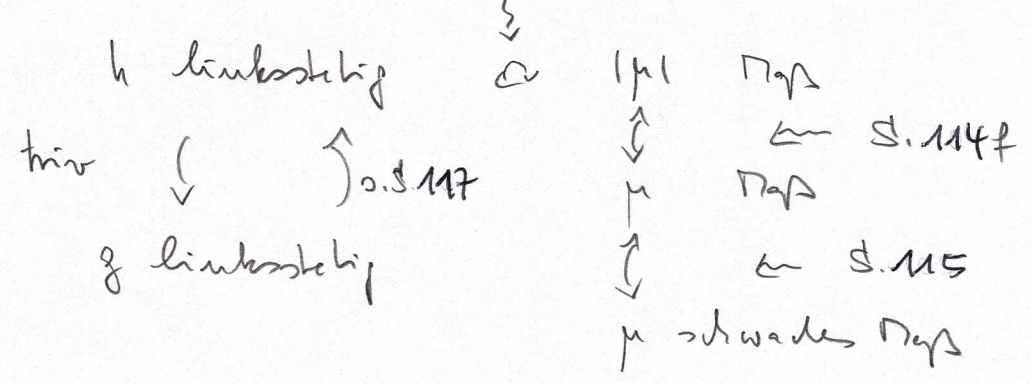 h linksstetig ⇔ |μ| Maß
← S. 114f
triv o.S. 117 μ Maß
g linksstetig ← S. 115
μ schwaches Maß